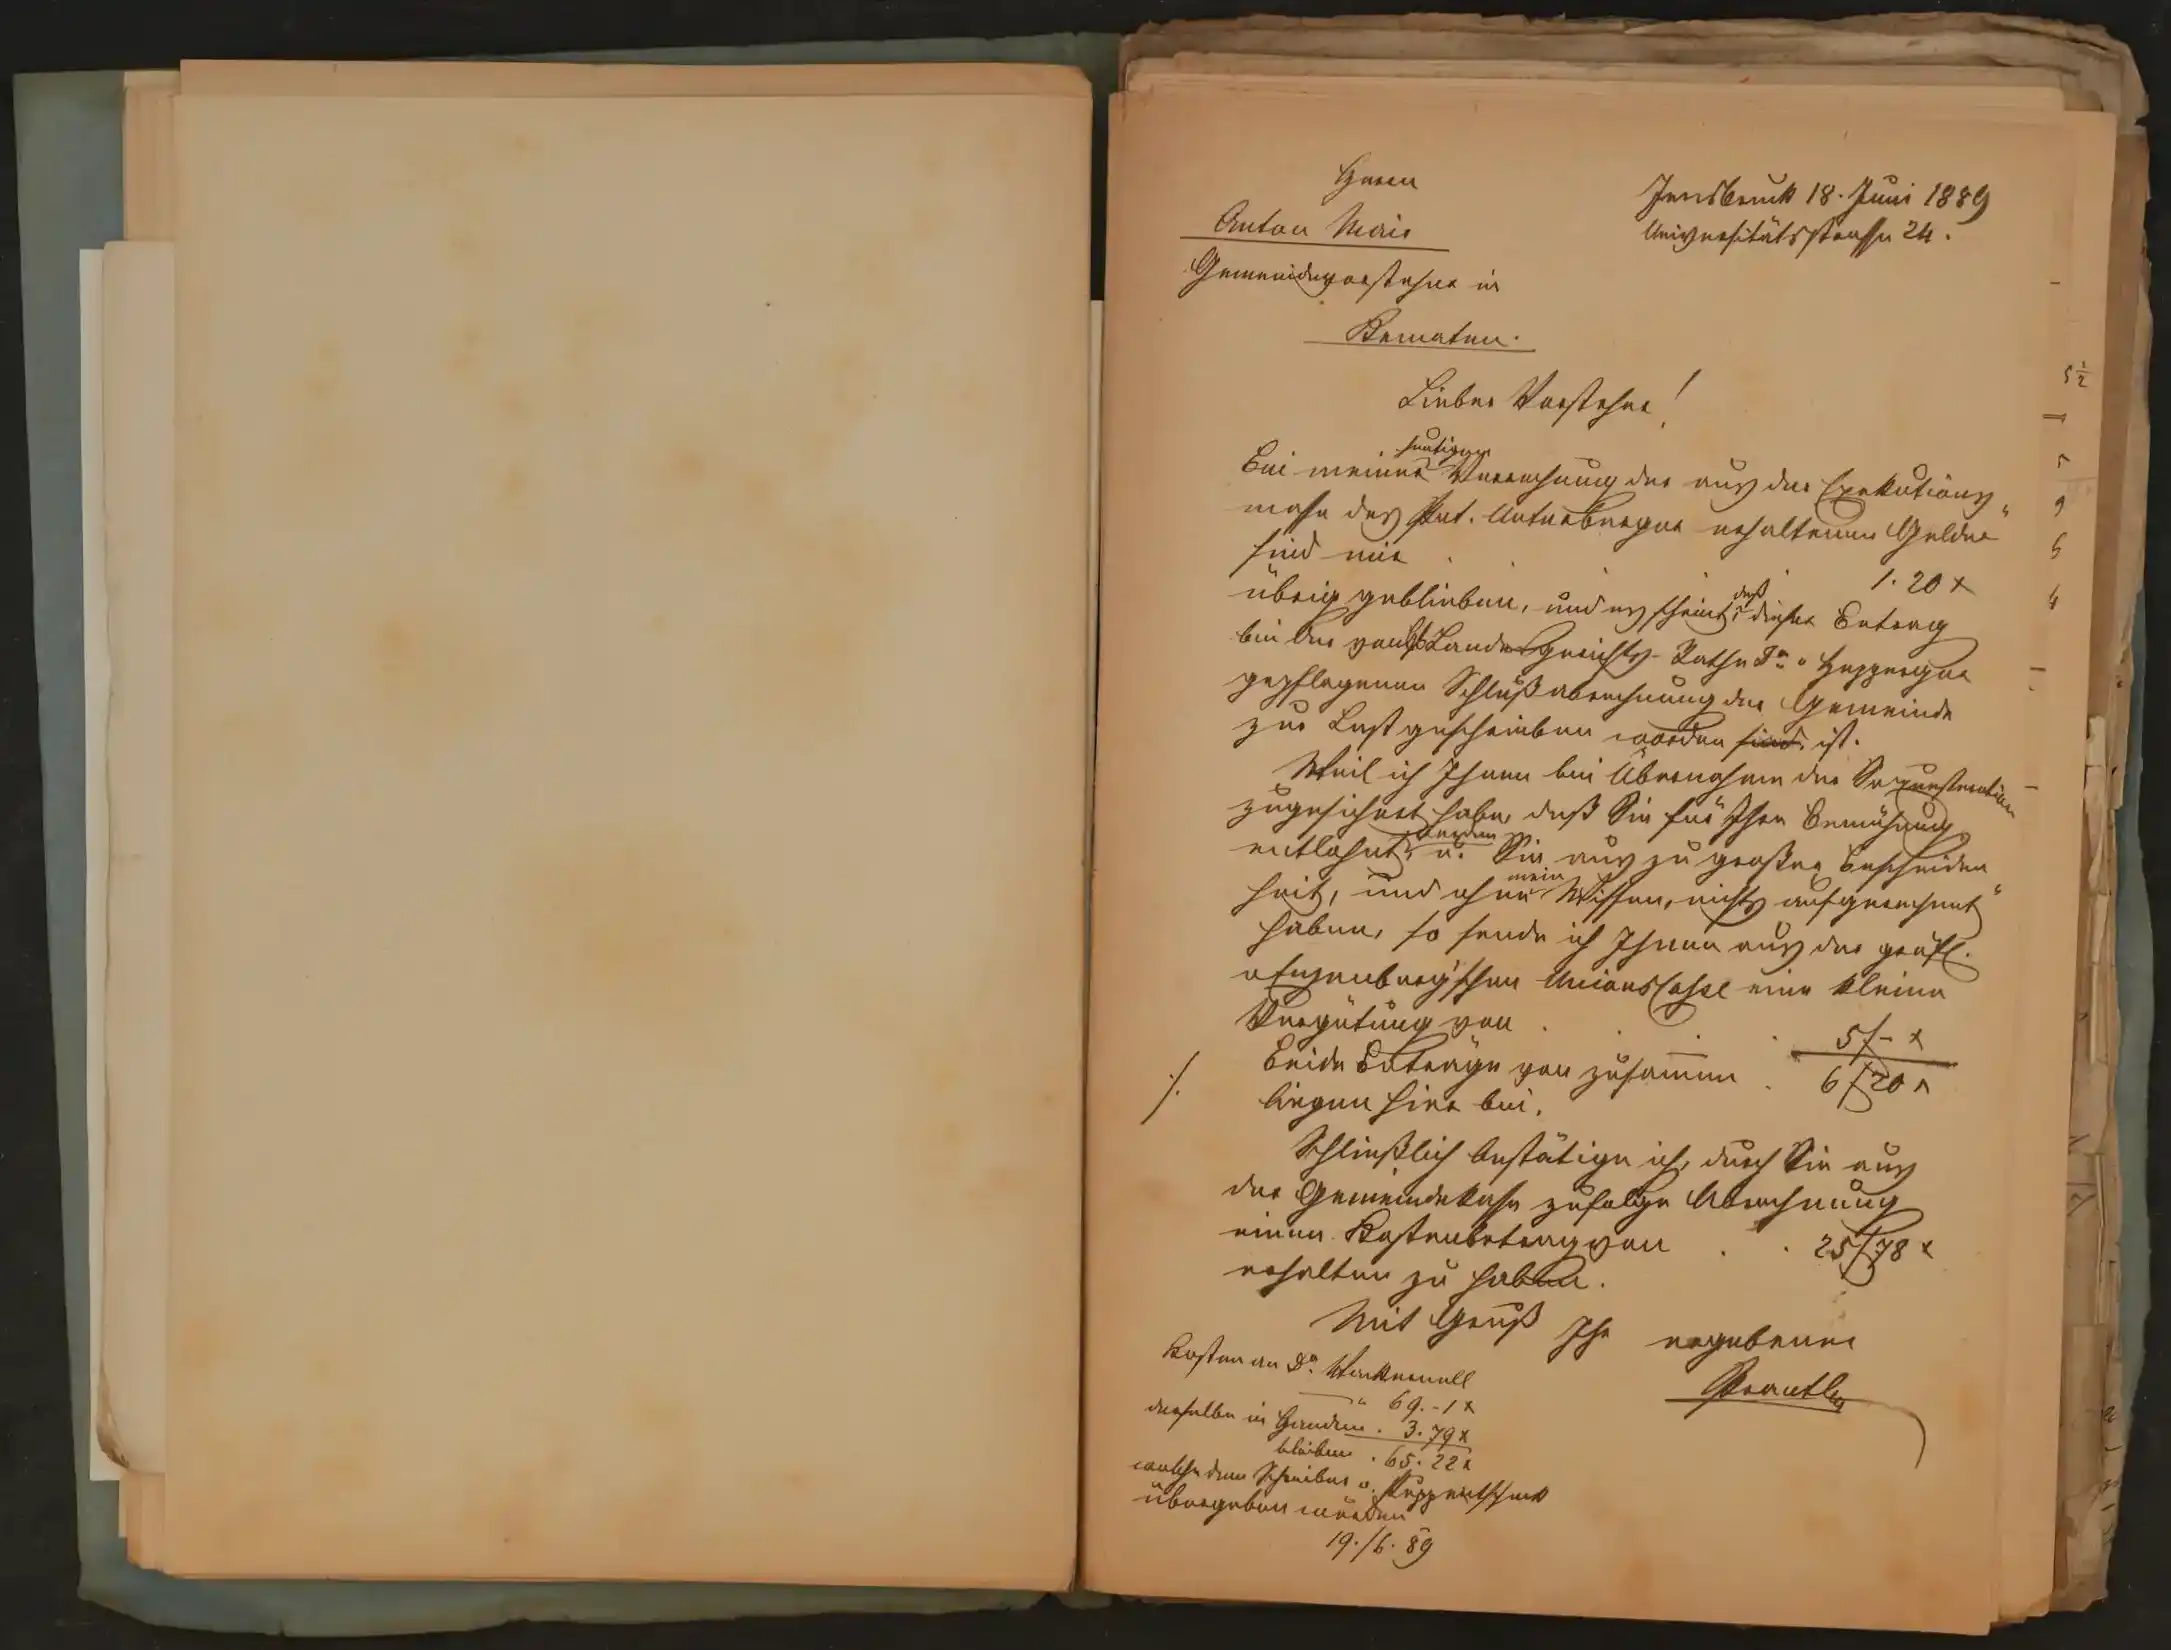 Herrn
Anton Mair
Gemeindevorsteher in
Kematen.
Innsbruck 18. Juni 1889
Universitätsstrasse 24.
Lieber Vorsteher!
heutigen
Bei meiner Verrechnung der aus der Exekutions„
masse des Ant. Unterberger erhaltenen Gelder
sind mir
1. 20 x
übrig geblieben, und es scheint, daß dieser Betrag
bei der vom Landesgerichts-Rathe Dr. v
gepflogenen Schlußabrechnung der Gemeinde
zur Last geschrieben worden sind. ist.
Weil ich Ihnen bei Übernahme der Sequestration
zugesichert habe, daß Sie für Ihre Bemühung
entlohnt werden u. Sie aus zu großer Bescheiden
heit, und ohne mein Wissen, nichts aufgerechnet
haben, so sende ich Ihnen aus der gräfl.
Enzenberg'schen Unions Casse eine kleine
Vergütung von
5 f – x
Beide Beträge von zusammen
6 f 20 x
liegen hier bei.
Schließlich bestätige ich, durch Sie aus
der Gemeindekasse zufolge Abrechnung
einen Kostenbetrag von 25 f 78 x
erhalten zu haben.
Mit Gruß Ihr ergebener
Prantl
Kosten an Dr. Wackernell
69. - 1 x
derselbe in Handen . 3. 79 x
bleiben . 65. 22 x
welche dem Schreiber v.
übergeben wurden
19./6. 89
5 1/2